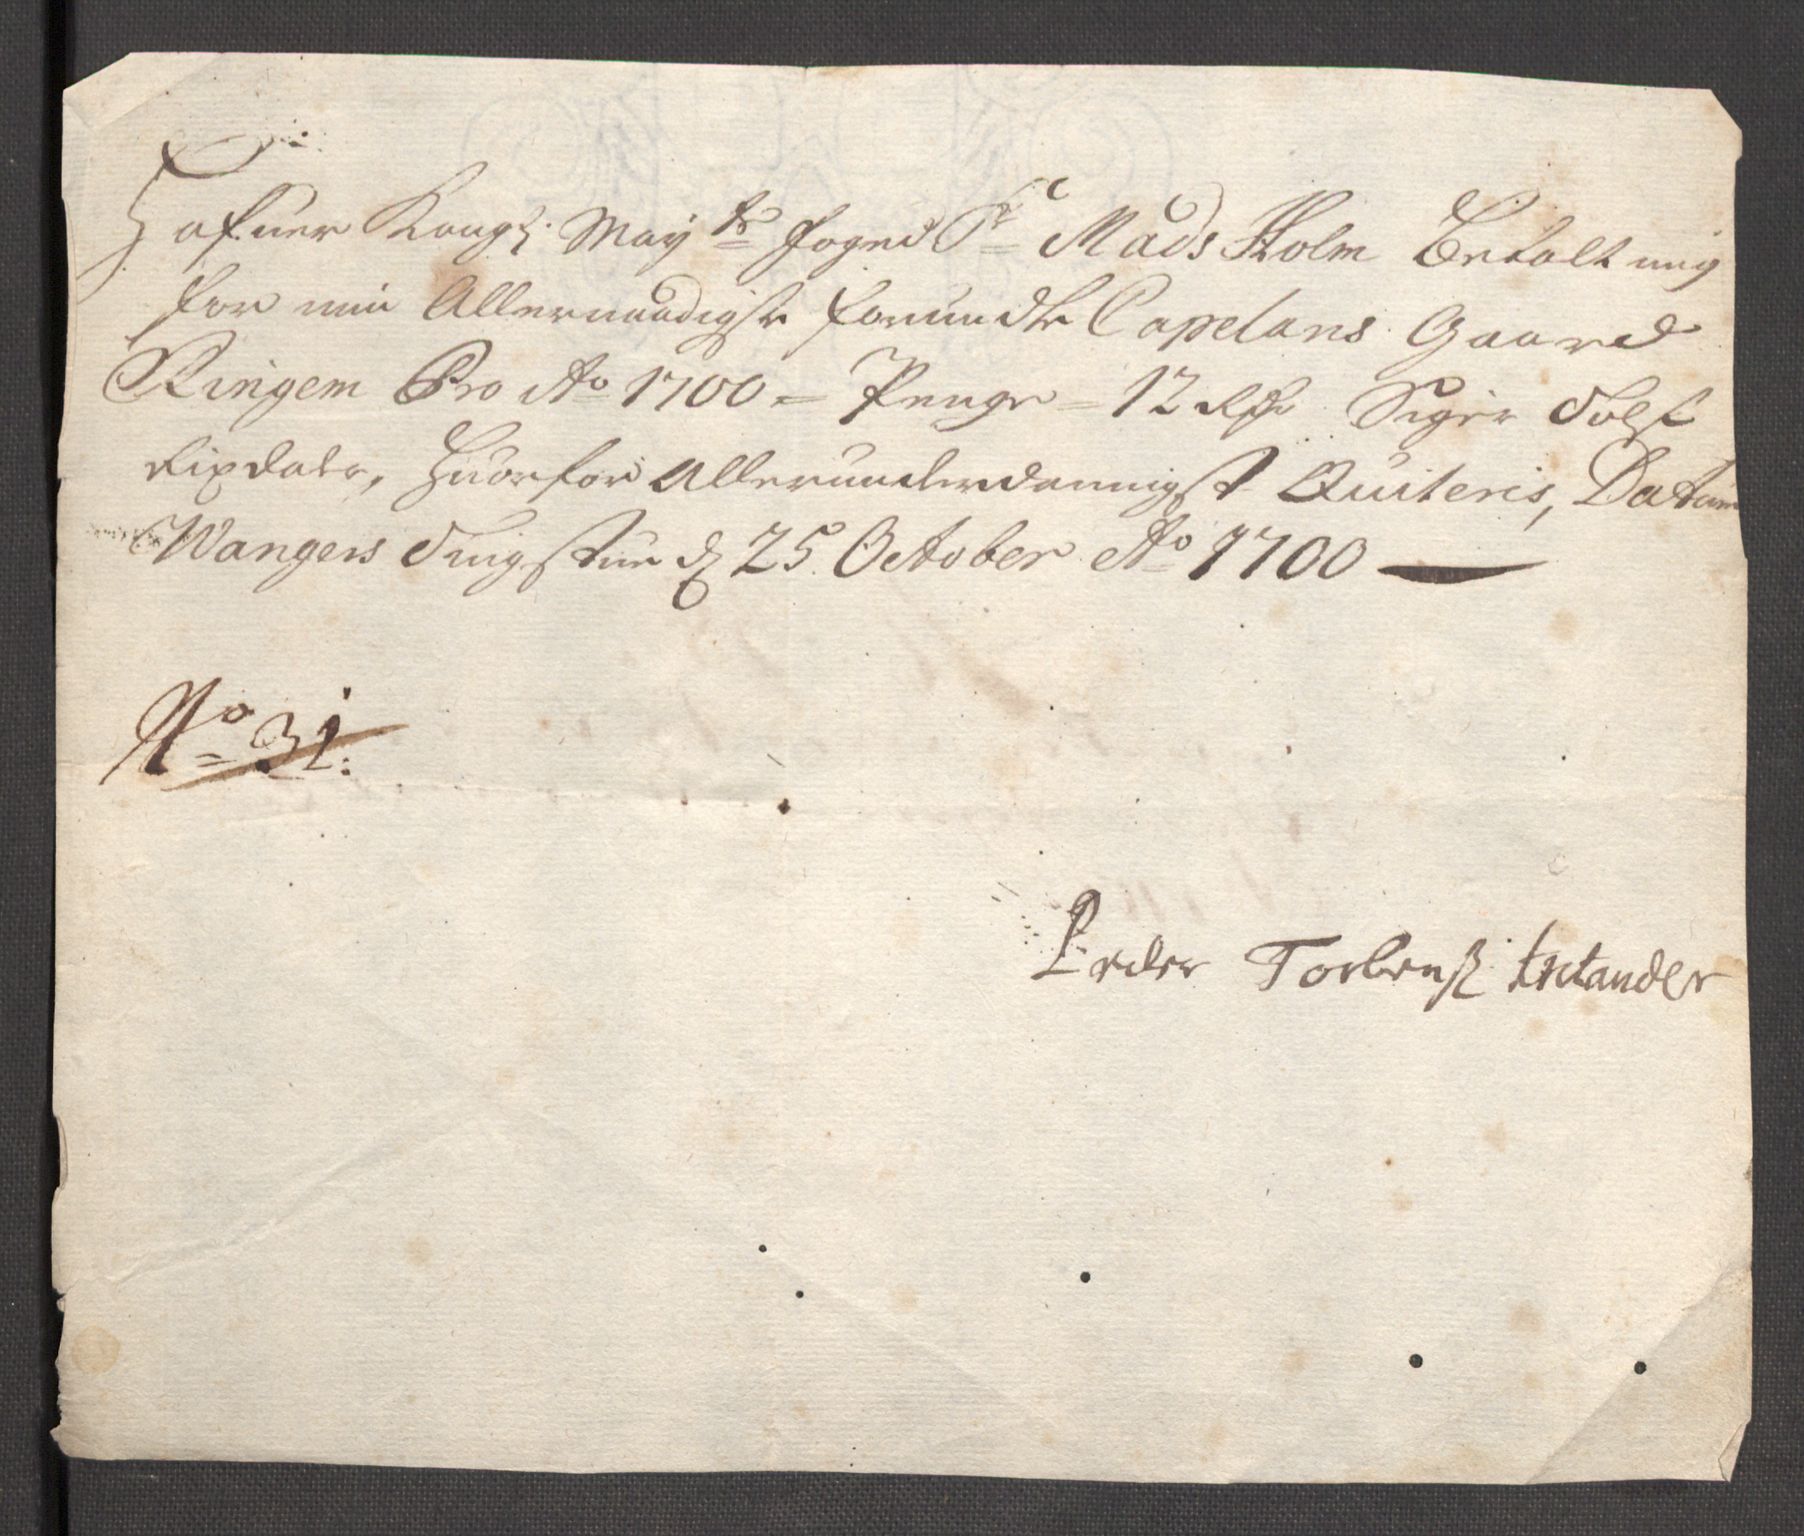 Hafuer Kongl: May:ts foged Sr Mads Holm Betalt mig
for min Allernaadigste forundte Capelans Gaard
Ringem Pro Ao 1700 = Penge = 12 Rdr Siger Tolf
Rixdaler, Huorfor Allerunderdannigst Quiteris, Datum
Wangens Tingstue d 25 October Ao 1700
No = 31:
Peder Torbensß